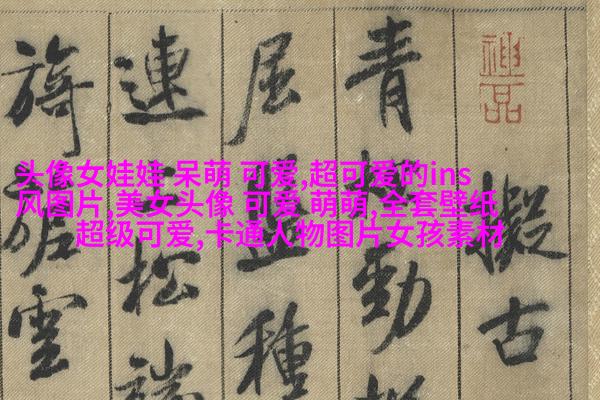 头像女娃娃 呆萌 可爱,超可爱的ins
风图片,美女头像 可爱 萌萌,全套壁纸
超级可爱,卡通人物图片女孩素材
神品
擬古
青松勁挺
屈盤種
連上松端
旖旎雲